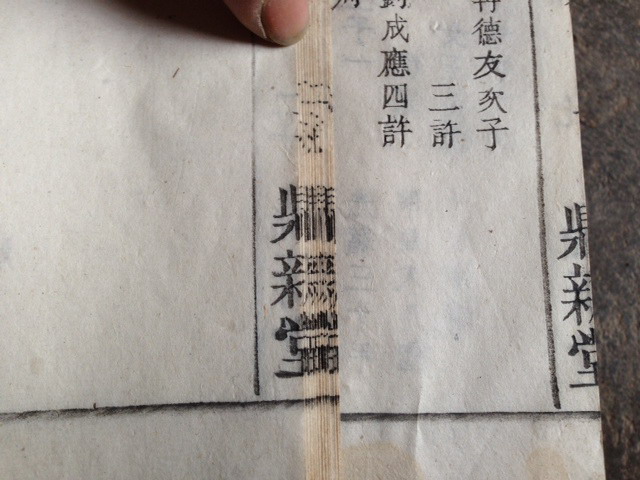 德友次子
三許
成應四許
鼎新堂
鼎新堂